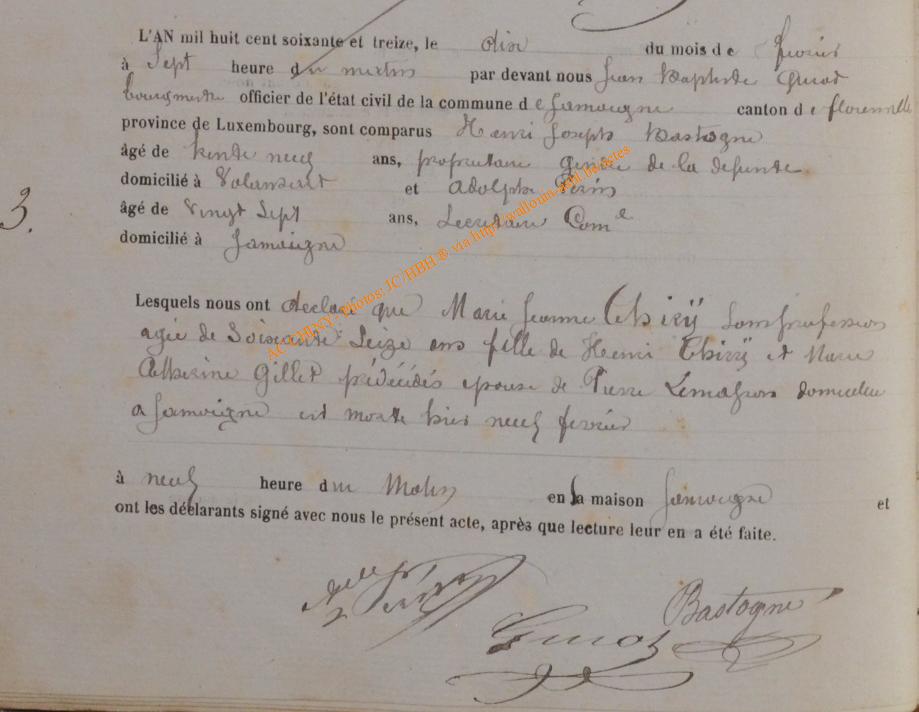 L'AN mil huit cent soixante et treize, le dix du mois de fevrier
à Sept heure du matin par devant nous Jean Baptiste Guiot
bourgmestre officier de l'état civil de la commune de Jamoigne canton de florenville
province de Luxembourg, sont comparus Henri Joseph Bastogne
âgé de trente neuf ans, proprietaire gendre de la defunte
domicilié à Valansart et Adolphe Perin
3. âgé de vingt sept ans, Secretaire Com^e
domicilié à Jamoigne
Lesquels nous ont declaré que Marie Jeanne Thirÿ Sans profession
agée de Soixante Seize ans fille de Henri Thirÿ et Marie
Catherine Gillet prédécédés epouse de Pierre Lemaçon domiciliée
a Jamoigne est morte hier neuf fevrier
à neuf heure du Matin en sa maison Jamoigne et
ont les déclarants signé avec nous le présent acte, après que lecture leur en a été faite.
Perin
Bastogne
Guiot
ACCHINY: Photos: JC/HBH ® via http://wallonia-